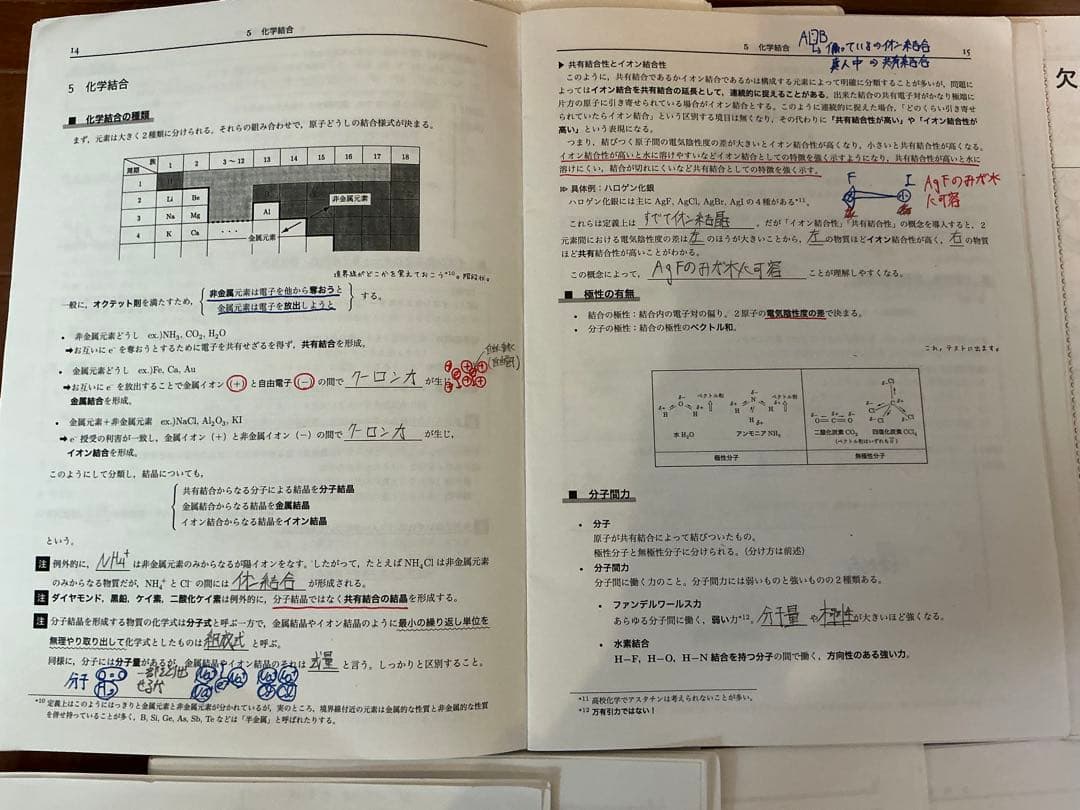 14
5 化学結合
5 化学結合
■ 化学結合の種類
まず，元素は大きく2種類に分けられる。それらの組み合わせで，原子どうしの結合様式が決まる。
族 1 2 3～12 13 14 15 16 17 18
周期
1 H
2 Li Be
3 Na Mg Al
4 K Ca ・・・
非金属元素
金属元素
境界線がどこかを覚えておこう*10。階段状。
一般に，オクテット則を満たすため，
非金属元素は電子を他から奪おうと
金属元素は電子を放出しようと
する。
・ 非金属元素どうし ex.)NH₃, CO₂, H₂O
➡お互いに e⁻ を奪おうとするために電子を共有せざるを得ず，共有結合を形成。
・ 金属元素どうし ex.)Fe, Ca, Au
➡お互いに e⁻ を放出することで金属イオン (+) と自由電子 (−) の間で クーロン力 が生じ，
金属結合を形成。
・ 金属元素＋非金属元素 ex.)NaCl, Al₂O₃, KI
➡ e⁻ 授受の利害が一致し，金属イオン（+）と非金属イオン（−）の間で クーロン力 が生じ，
イオン結合を形成。
このようにして分類し，結晶についても，
共有結合からなる分子による結晶を分子結晶
金属結合からなる結晶を金属結晶
イオン結合からなる結晶をイオン結晶
という。
注 例外的に， NH₄⁺ は非金属元素のみからなるが陽イオンをなす。したがって，たとえば NH₄Cl は非金属元素
のみからなる物質だが，NH₄⁺ と Cl⁻ の間には イオン結合 が形成される。
注 ダイヤモンド，黒鉛，ケイ素，二酸化ケイ素は例外的に，分子結晶ではなく共有結合の結晶を形成する。
注 分子結晶を形成する物質の化学式は分子式と呼ぶ一方で，金属結晶やイオン結晶のように最小の繰り返し単位を
無理やり取り出して化学式としたものは 組成式 と呼ぶ。
同様に，分子には分子量があるが，金属結晶やイオン結晶のそれは 式量 と言う。しっかりと区別すること。
分子
*10 定義上はこのようにはっきりと金属元素と非金属元素が分かれているが，実のところ，境界線付近の元素は金属的な性質と非金属的な性質
を併せ持っていることが多く，B, Si, Ge, As, Sb, Te などは「半金属」と呼ばれたりする。
5 化学結合
15
偏っているのイオン結合
真ん中の共有結合
▶ 共有結合性とイオン結合性
このように，共有結合であるかイオン結合であるかは構成する元素によって明確に分類することが多いが，問題
によってはイオン結合を共有結合の延長として，連続的に捉えることがある。出来た結合の共有電子対がかなり極端に
片方の原子に引き寄せられている場合がイオン結合とする。このように連続的に捉えた場合，「どのくらい引き寄
せられていたらイオン結合」という区別する項目は無くなり，その代わりに「共有結合性が高い」や「イオン結合性が
高い」という表現になる。
つまり，結びつく原子間の電気陰性度の差が大きいとイオン結合性が高くなり，小さいと共有結合性が高くなる。
イオン結合性が高いと水に溶けやすいなどイオン結合としての特徴を強く示すようになり，共有結合性が高いと水に
溶けにくい，結合が切れにくいなど共有結合としての特徴を強く示す。
⫸ 具体例：ハロゲン化銀
ハロゲン化銀には主に AgF, AgCl, AgBr, AgI の4種がある*11。
F I
AgFのみが水
に可溶
これらは定義上は すべてイオン結晶 。だが「イオン結合性」「共有結合性」の概念を導入すると，2
元素間における電気陰性度の差は 左 のほうが大きいことから， 左 の物質ほどイオン結合性が高く， 右 の物質
ほど共有結合性が高いことがわかる。
この概念によって， AgFのみが水に可溶 ことが理解しやすくなる。
■ 極性の有無
・ 結合の極性：結合内の電子対の偏り。2原子の電気陰性度の差で決まる。
・ 分子の極性：結合の極性のベクトル和。
これ，テストに出ます。
ベクトル和
水 H₂O
ベクトル和
アンモニア NH₃
極性分子
二酸化炭素 CO₂ 四塩化炭素 CCl₄
無極性分子
■ 分子間力
・ 分子
原子が共有結合によって結びついたもの。
極性分子と無極性分子に分けられる。（分け方は前述）
・ 分子間力
分子間に働く力のこと。分子間力には弱いものと強いものの2種類ある。
・ ファンデルワールス力
あらゆる分子間に働く，弱い力*12。 分子量 や 極性 が大きいほど強くなる。
・ 水素結合
H−F，H−O，H−N 結合を持つ分子の間で働く，方向性のある強い力。
*11 高校化学でアスタチンは考えられないことが多い。
*12 万有引力ではない！
欠